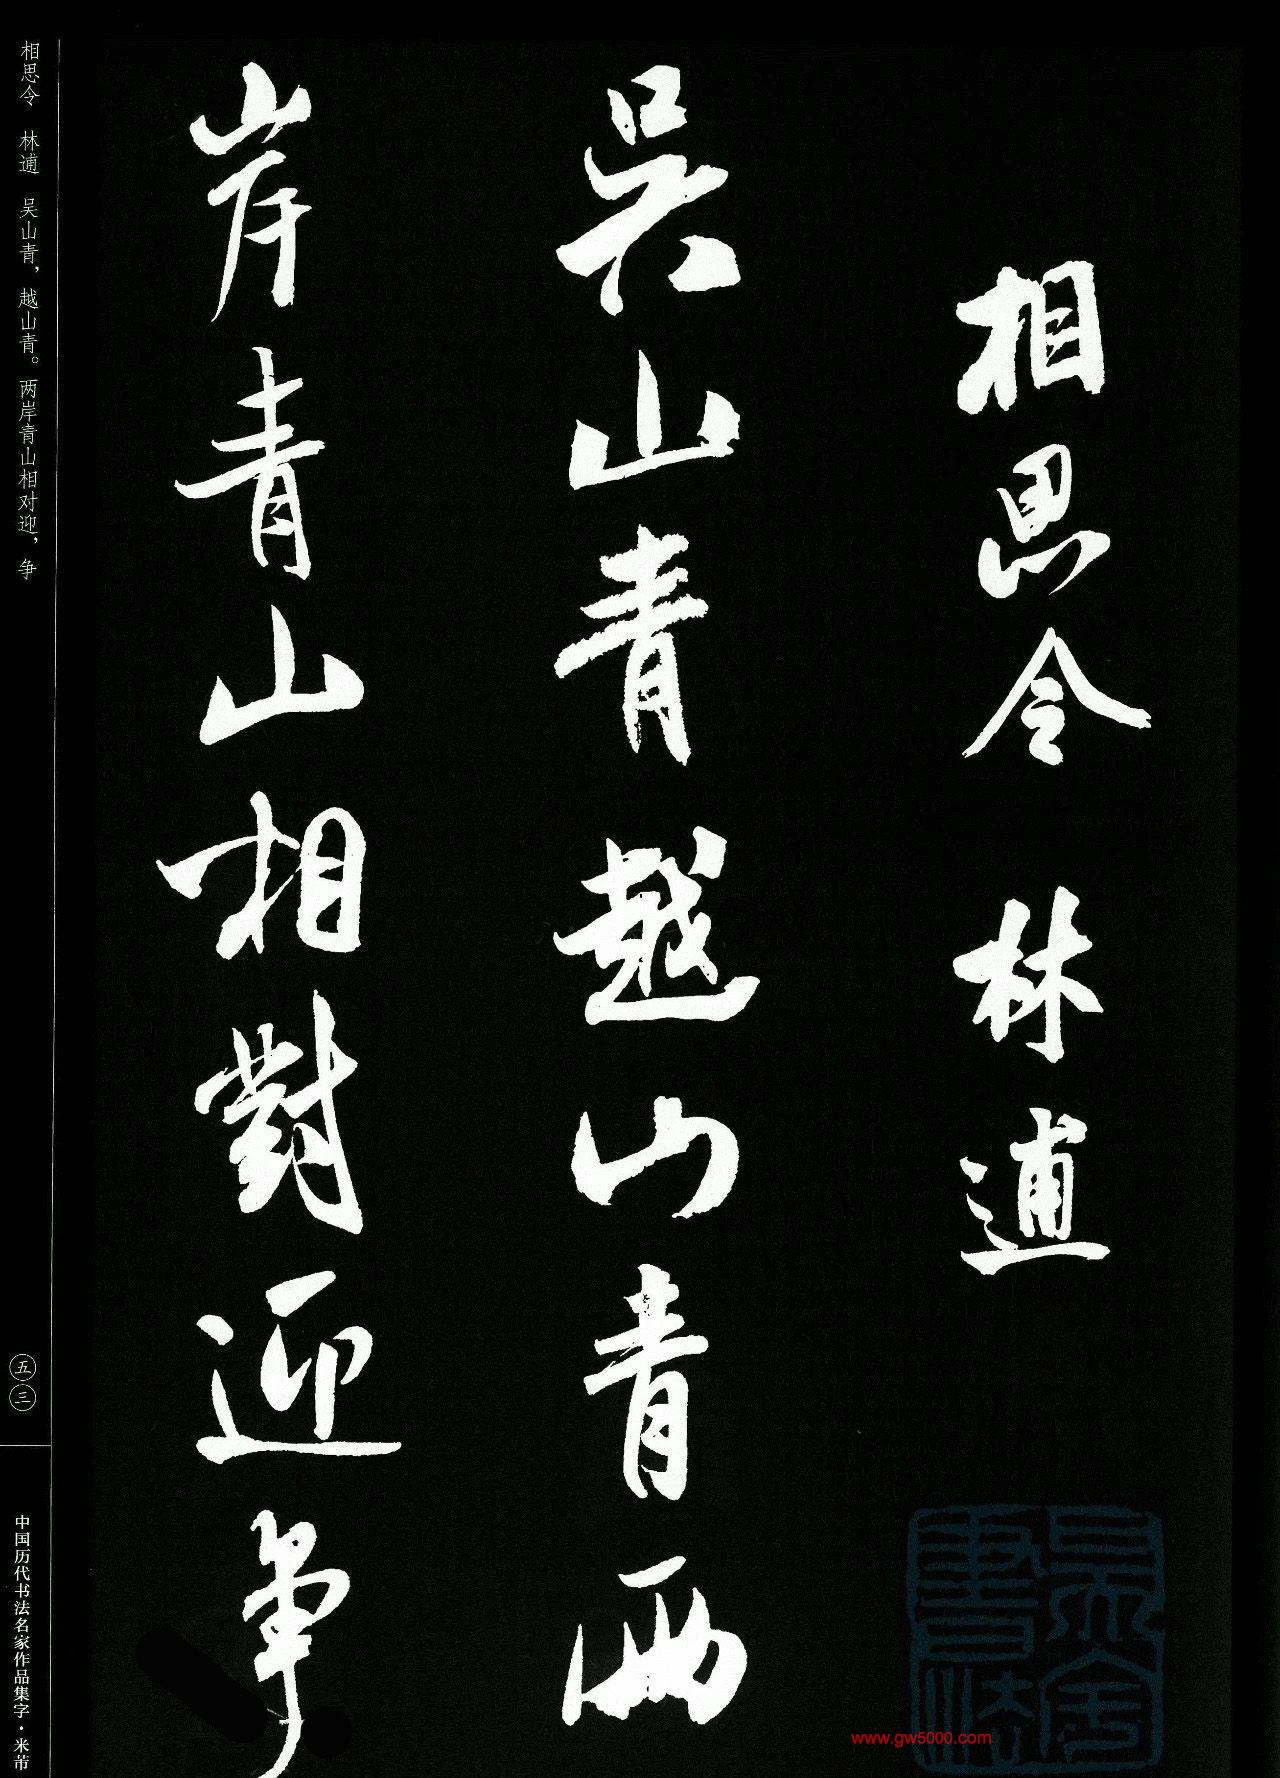 相思令 林逋
吳山青越山青两
岸青山相對迎爭
相思令 林逋 吴山青，越山青。两岸青山相对迎，争
五三
中国历代书法名家作品集字·米芾
www.gw5000.com